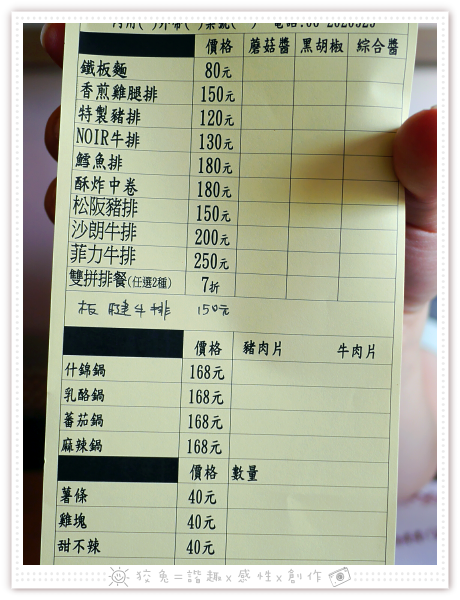 價格 蘑菇醬 黑胡椒 綜合醬
鐵板麵 80元
香煎雞腿排 150元
特製豬排 120元
NOIR牛排 130元
鱈魚排 180元
酥炸中卷 180元
松阪豬排 150元
沙朗牛排 200元
菲力牛排 250元
雙拼排餐(任選2種) 7折
板腱牛排 150元
價格 豬肉片 牛肉片
什錦鍋 168元
乳酪鍋 168元
蕃茄鍋 168元
麻辣鍋 168元
價格 數量
薯條 40元
雞塊 40元
甜不辣 40元
狡兔=諧趣x感性x創作